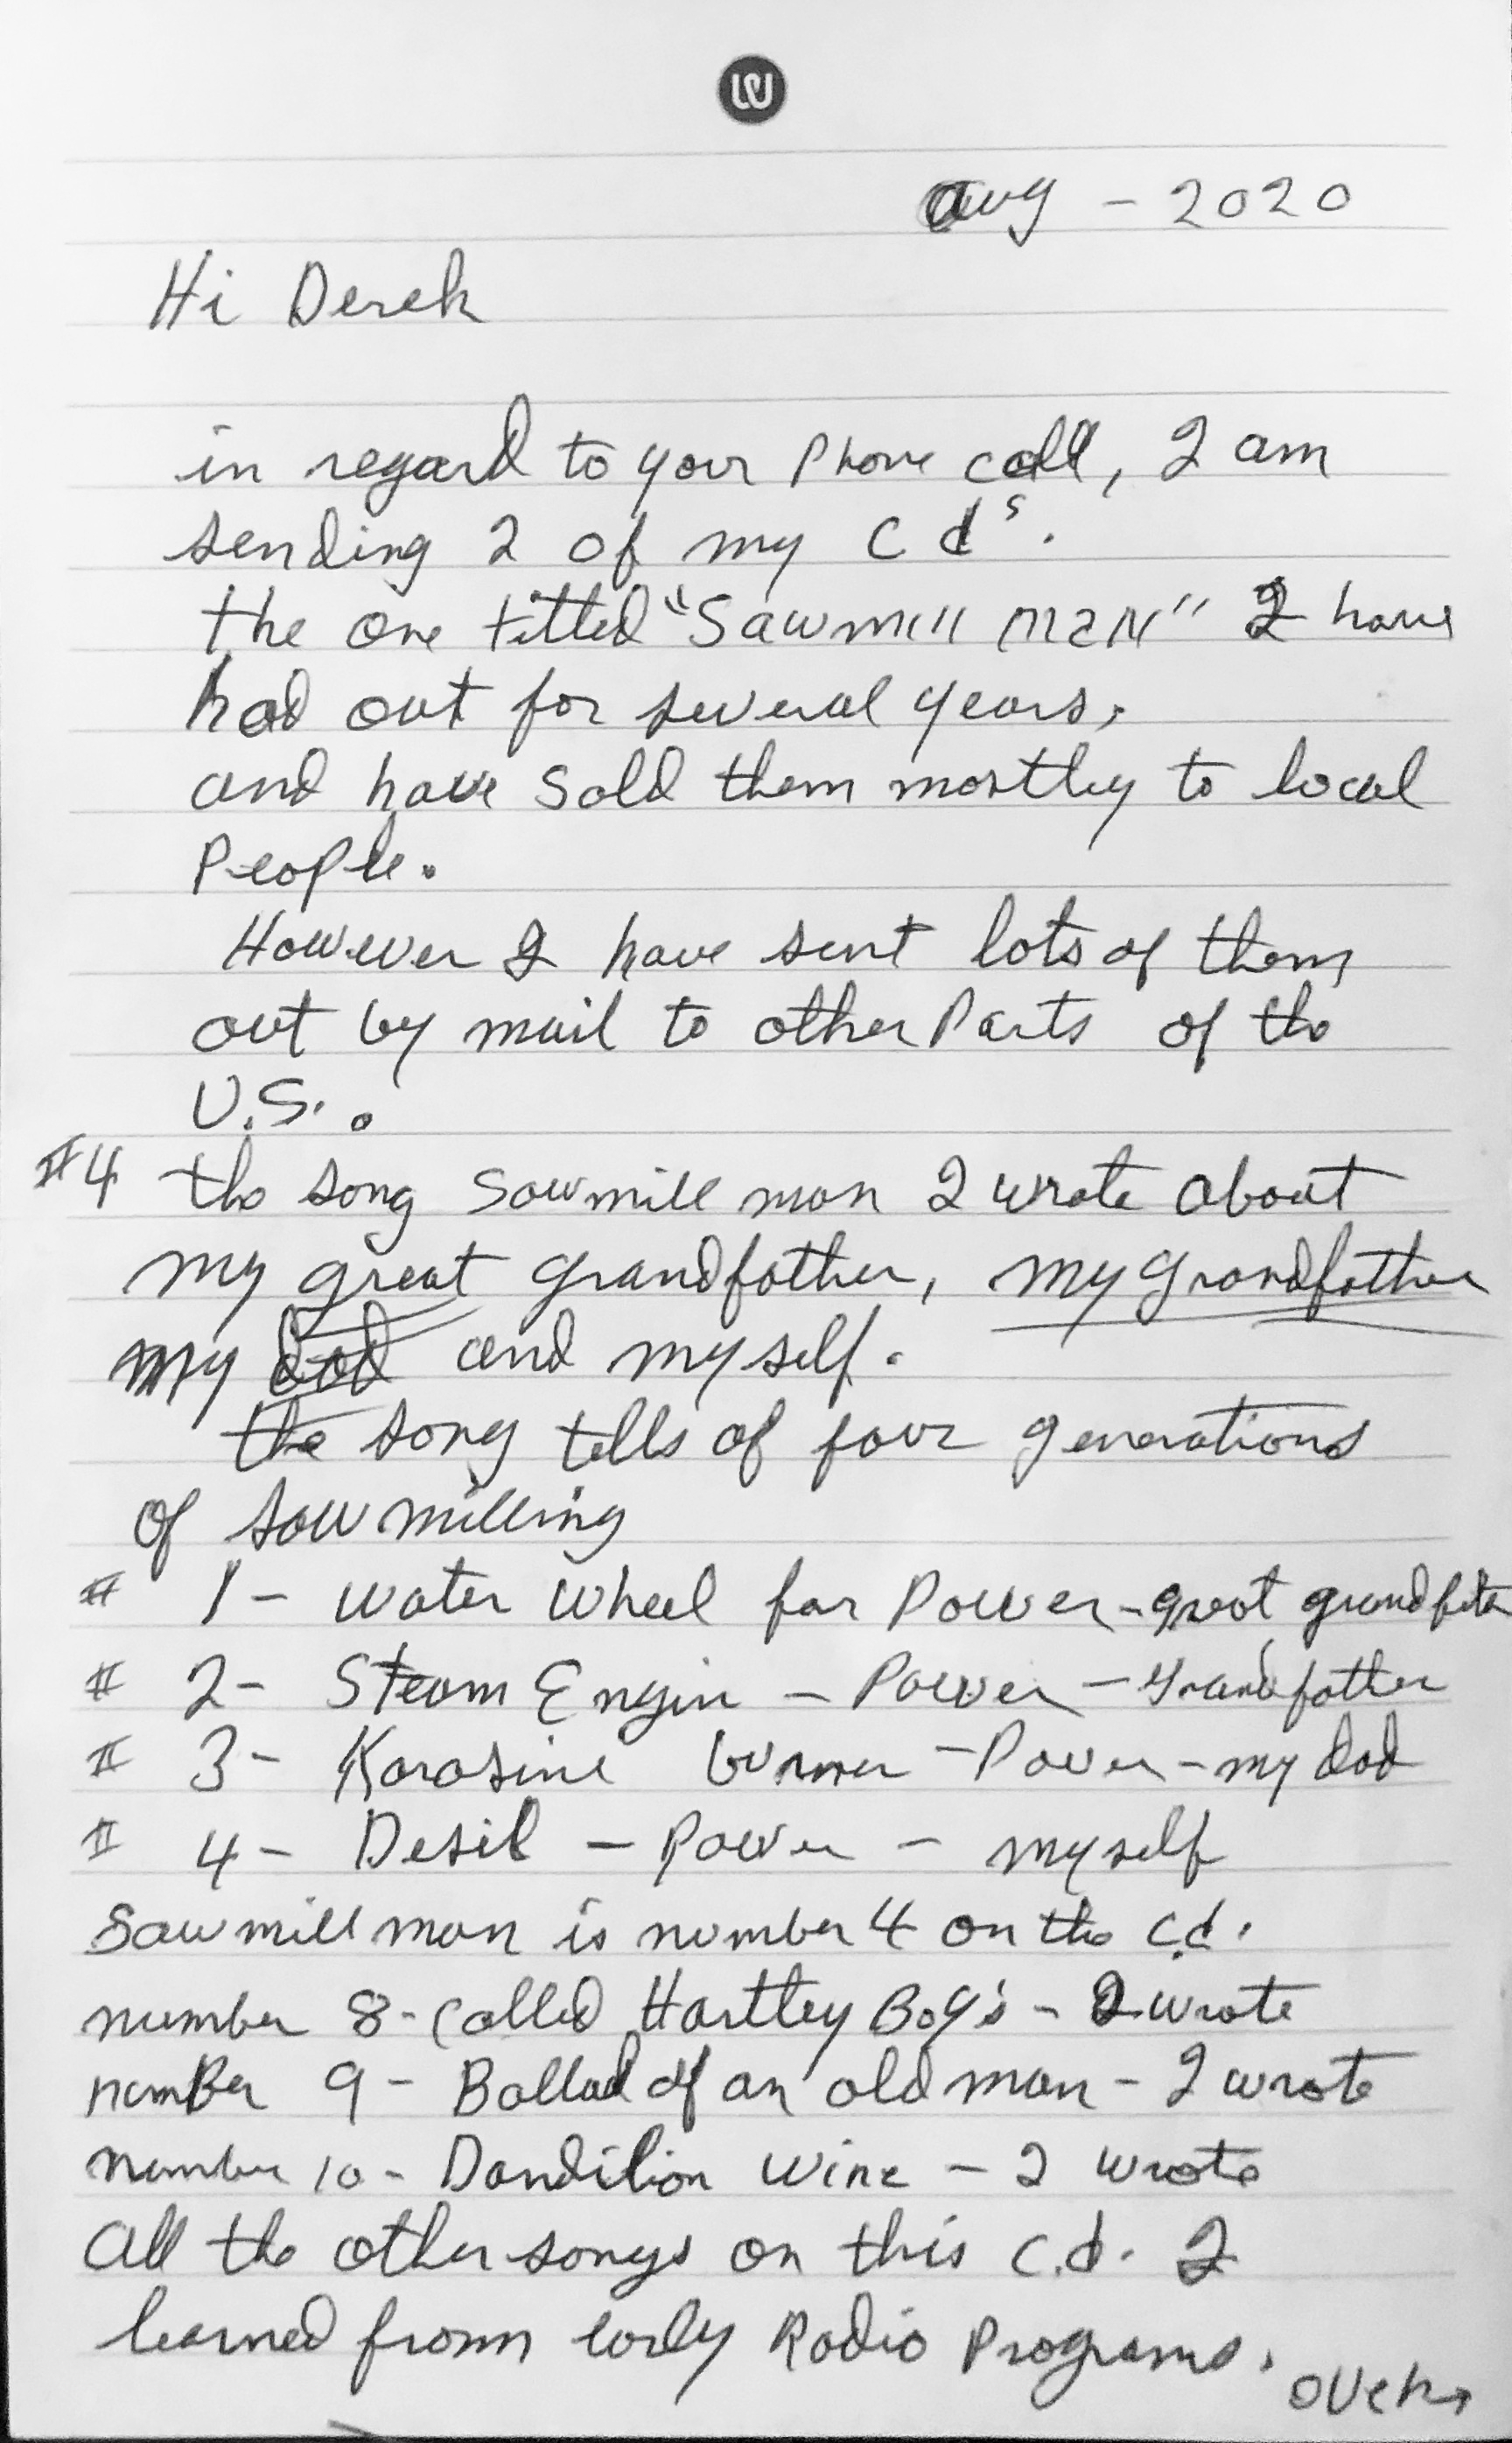 Aug - 2020
Hi Derek
in regard to your Phone call, I am
sending 2 of my Cd's.
the one titled "Sawmill Man" I have
had out for several years,
and have Sold them mostley to local
People.
However I have sent lots of them
out by mail to other Parts of the
U.S..
#4 the song Sawmill man I wrote about
my great grandfather, my grandfather
my dad and myself.
the song tells of four generations
of sawmilling
# 1- water wheel for Power - great grandfather
# 2- Steam Engin - Power - Grandfather
# 3- Karosine burner - Power - my dad
# 4- Desil - Power - myself
Sawmill man is number 4 on the c.d.
number 8 - Called Hartley Boy's - I wrote
number 9 - Ballad of an old man - I wrote
number 10 - Dandilion Wine - I wrote
All the other songs on this c.d. I
learned from early Radio Programs.
over→